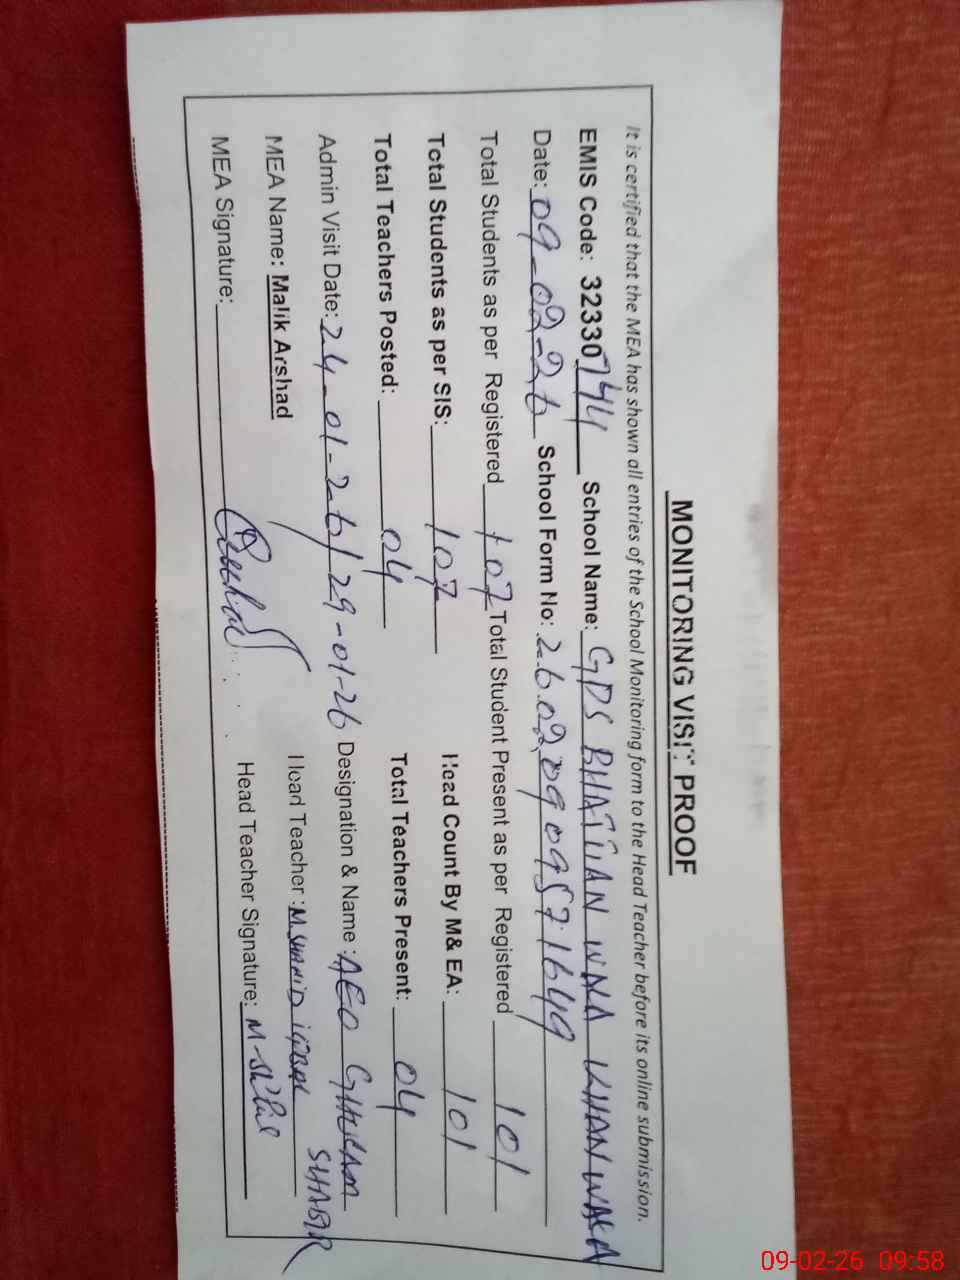 MONITORING VISIT PROOF
It is certified that the MEA has shown all entries of the School Monitoring form to the Head Teacher before its online submission.
EMIS Code: 32330744 School Name: GPS BHATIAN WALA KHAN WALA
Date: 09-02-26 School Form No: 26.02.09 09571649
Total Students as per Registered 107 Total Student Present as per Registered 101
Total Students as per SIS: 107 Head Count By M& EA: 101
Total Teachers Posted: 04 Total Teachers Present: 04
Admin Visit Date: 24-01-26/29-01-26 Designation & Name: AEO GHULAM SHABIR
MEA Name: Malik Arshad Head Teacher: M.SHAHID IQBAL
MEA Signature: Head Teacher Signature: M-Shahid
09-02-26 09:58